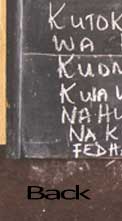 KUTOK
WA
KUON
KWA
NA HU
NA K
FEDHA
Back